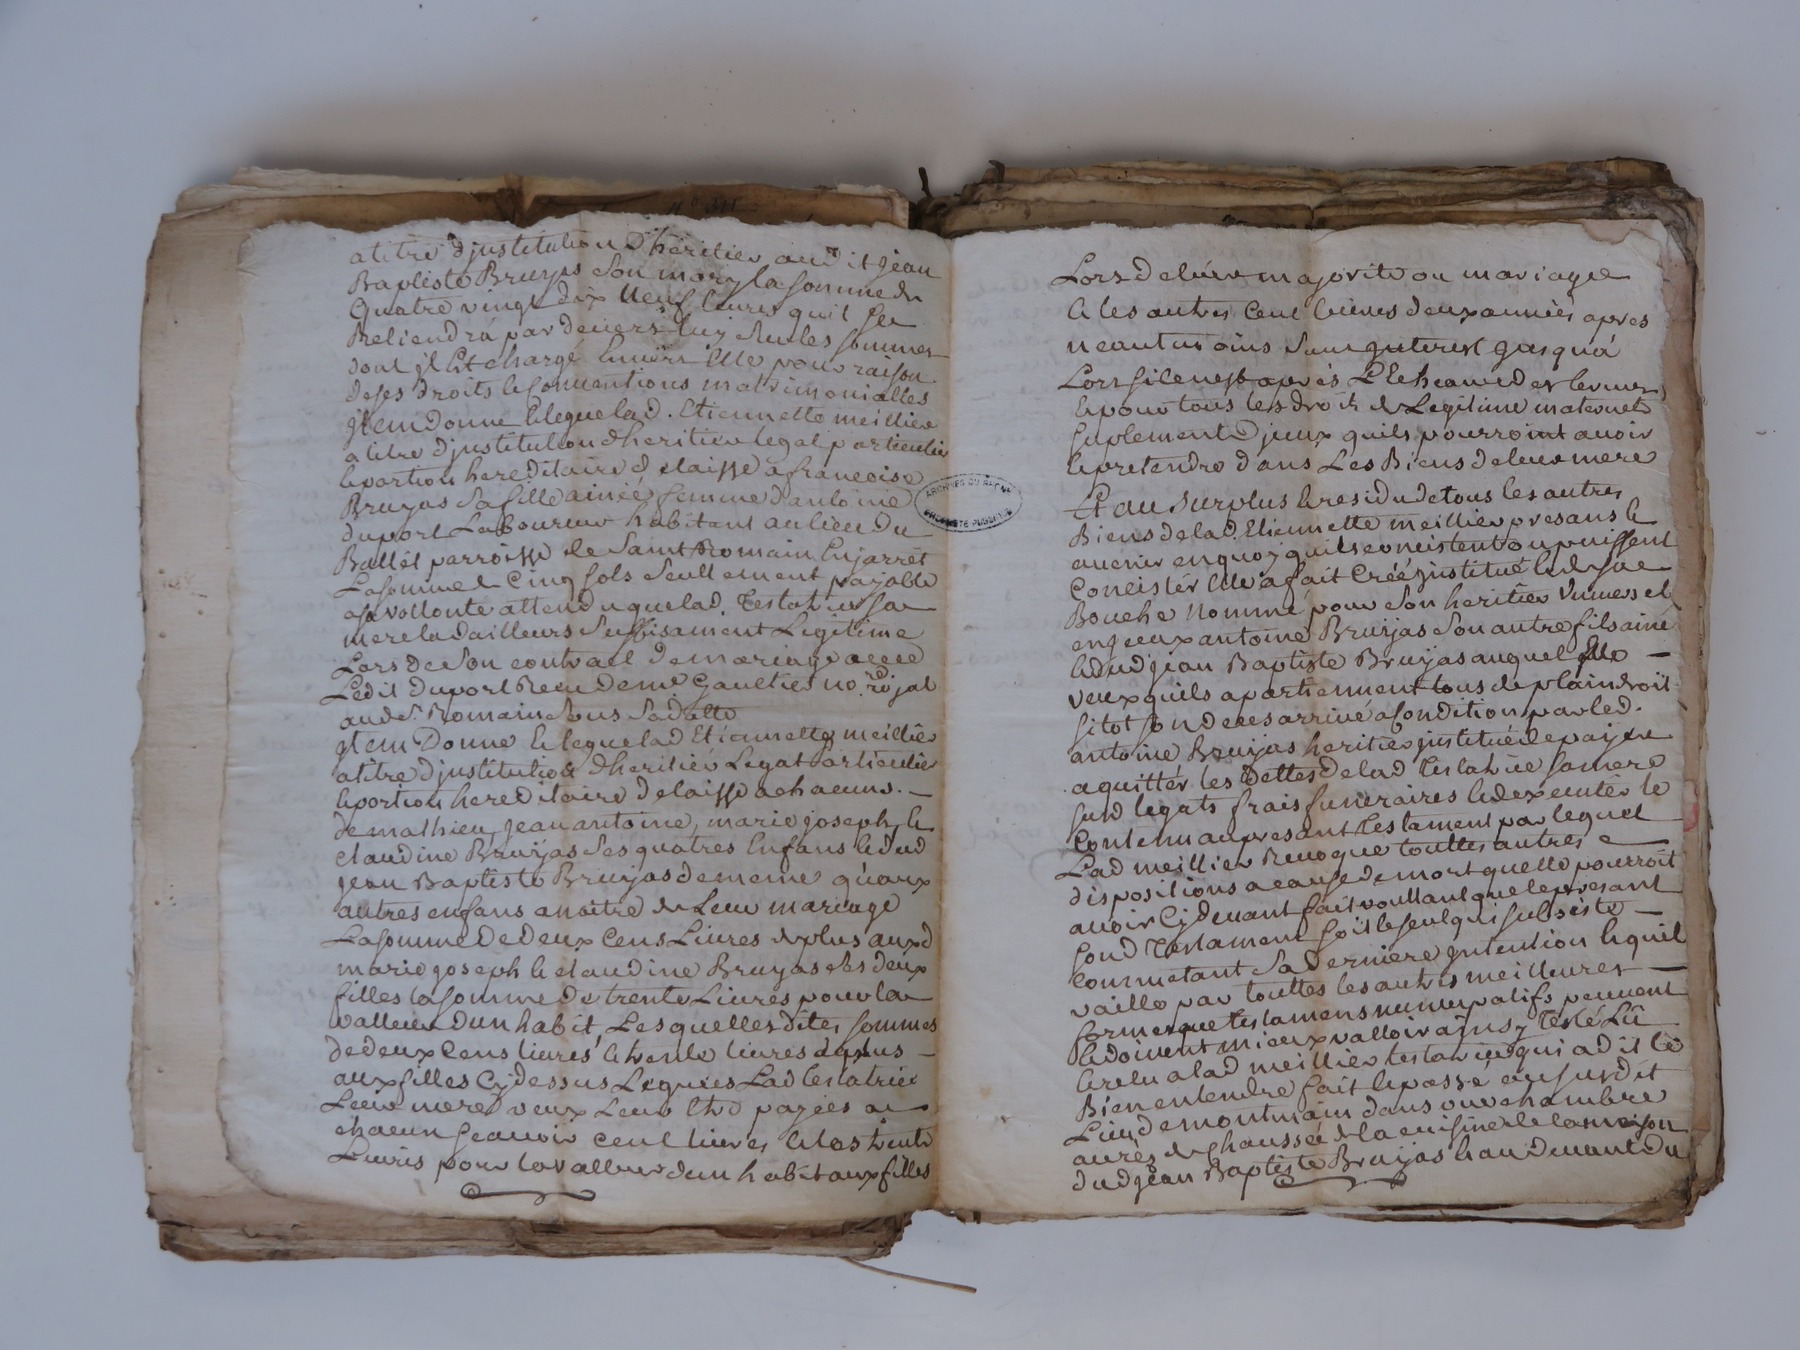 atitre djnstitution D'héritier audit jean
Baptiste Bruyas son mary la somme de
Quatre vingt dix neuf livres quil se
Retiendra par deuers luy sur les sommes
dont jl est chargé enuers elle pour raison
de ses droits & conuentions matrimonialles
jtem donne & legue lad. Etiennette meillier
a titre djnstitution dheritier legat particulier
& portion hereditaire & delaisse a francoise
Bruyas sa fille ainée femme dantoine
duport Laboureur habitant au lieu du
Ballet parroisse de Saint Romain En jarrêt
La somme de Cinq sols seullement payable
asa vollonté attendu que lad. Testatrice sa
mere lad ailleurs suffisament Legitime
Lors de son contract de mariage avec
Ledit duport Receu de me Gaultier no.re Rojal
aud St. Romain sous sa datte
jtem Donne & legue lad Etiennette meillier
atitre djnstitution dheritier Legat particulier
& portion hereditaire delaisse a chacuns. —
de mathieu, jean antoine, marie joseph, &
claudine Bruyas ses quatres Enfans & dud
jean Baptiste Bruyas de meme qu'aux
autres enfans a naitre de Leur mariage
La somme De deux Cens Livres & plus auxd
marie joseph & claudine Bruyas ses deux
filles la somme de trente Livres pour la
valleur dun habit, Lesquelles dites sommes
de deux Cens livres & trente livres de plus —
aux filles Cydessus Leguées Lad testatrice
Leur mere veux Leur Etre payées a
chacun scauoir cent livres & las trente
Livres pour la valleur dun habit aux filles
ARCHIVES DU RHÔNE
Lors de leur majorité ou mariage
& les autres Cent livres deux années apres
neantmoins sans jnterest jusqu'á
Lors si ce nest aprés L'Echeance des termes,
& pour tous les droits de Legitime maternels
suplement djceux quils pourroint auoir
& pretendre dans Les Biens de leur mere
Et au surplus & residu de tous les autres
Biens de lad. Etiennette meillier presans &
auenir en quoy quils concistent ou puissent
Concister elle a fait Créé jnstitué & de sa
Bouche Nommé pour son heritier vniuersel
en jceux antoine Bruyas son autre fils ainé
& dud jean Baptiste Bruyas auquel elle —
veux quils apartiennent tous de plain droit
sitot son deces arrivé a condition par led.
antoine Bruyas heritier jnstitué de payer
aquitter les dettes de lad testatrice sa mere
susd legats frais funeraires & dexecuter le
Contenu au presant testament par lequel
Lad meillier Reuoque touttes autres
dispositions a cause de mort quelle pourroit
auoir Cydeuant fait voullant que le presant
sond Testament soit le seul qui subsiste —
commetant sa derniere jntention & quil
vaille par touttes les autres meilleures —
formes que testamens nuncupatifs peuuent
& doiuent mieux valloir ainsy Testé Lû
& relu a lad meillier testatrice qui a dit le
Bien entendre fait & passé au susdit
Lieu de montmain dans une chambre
au rés de chaussée & la cuisine de la maison
dud jean Baptiste Bruyas & au deuant du